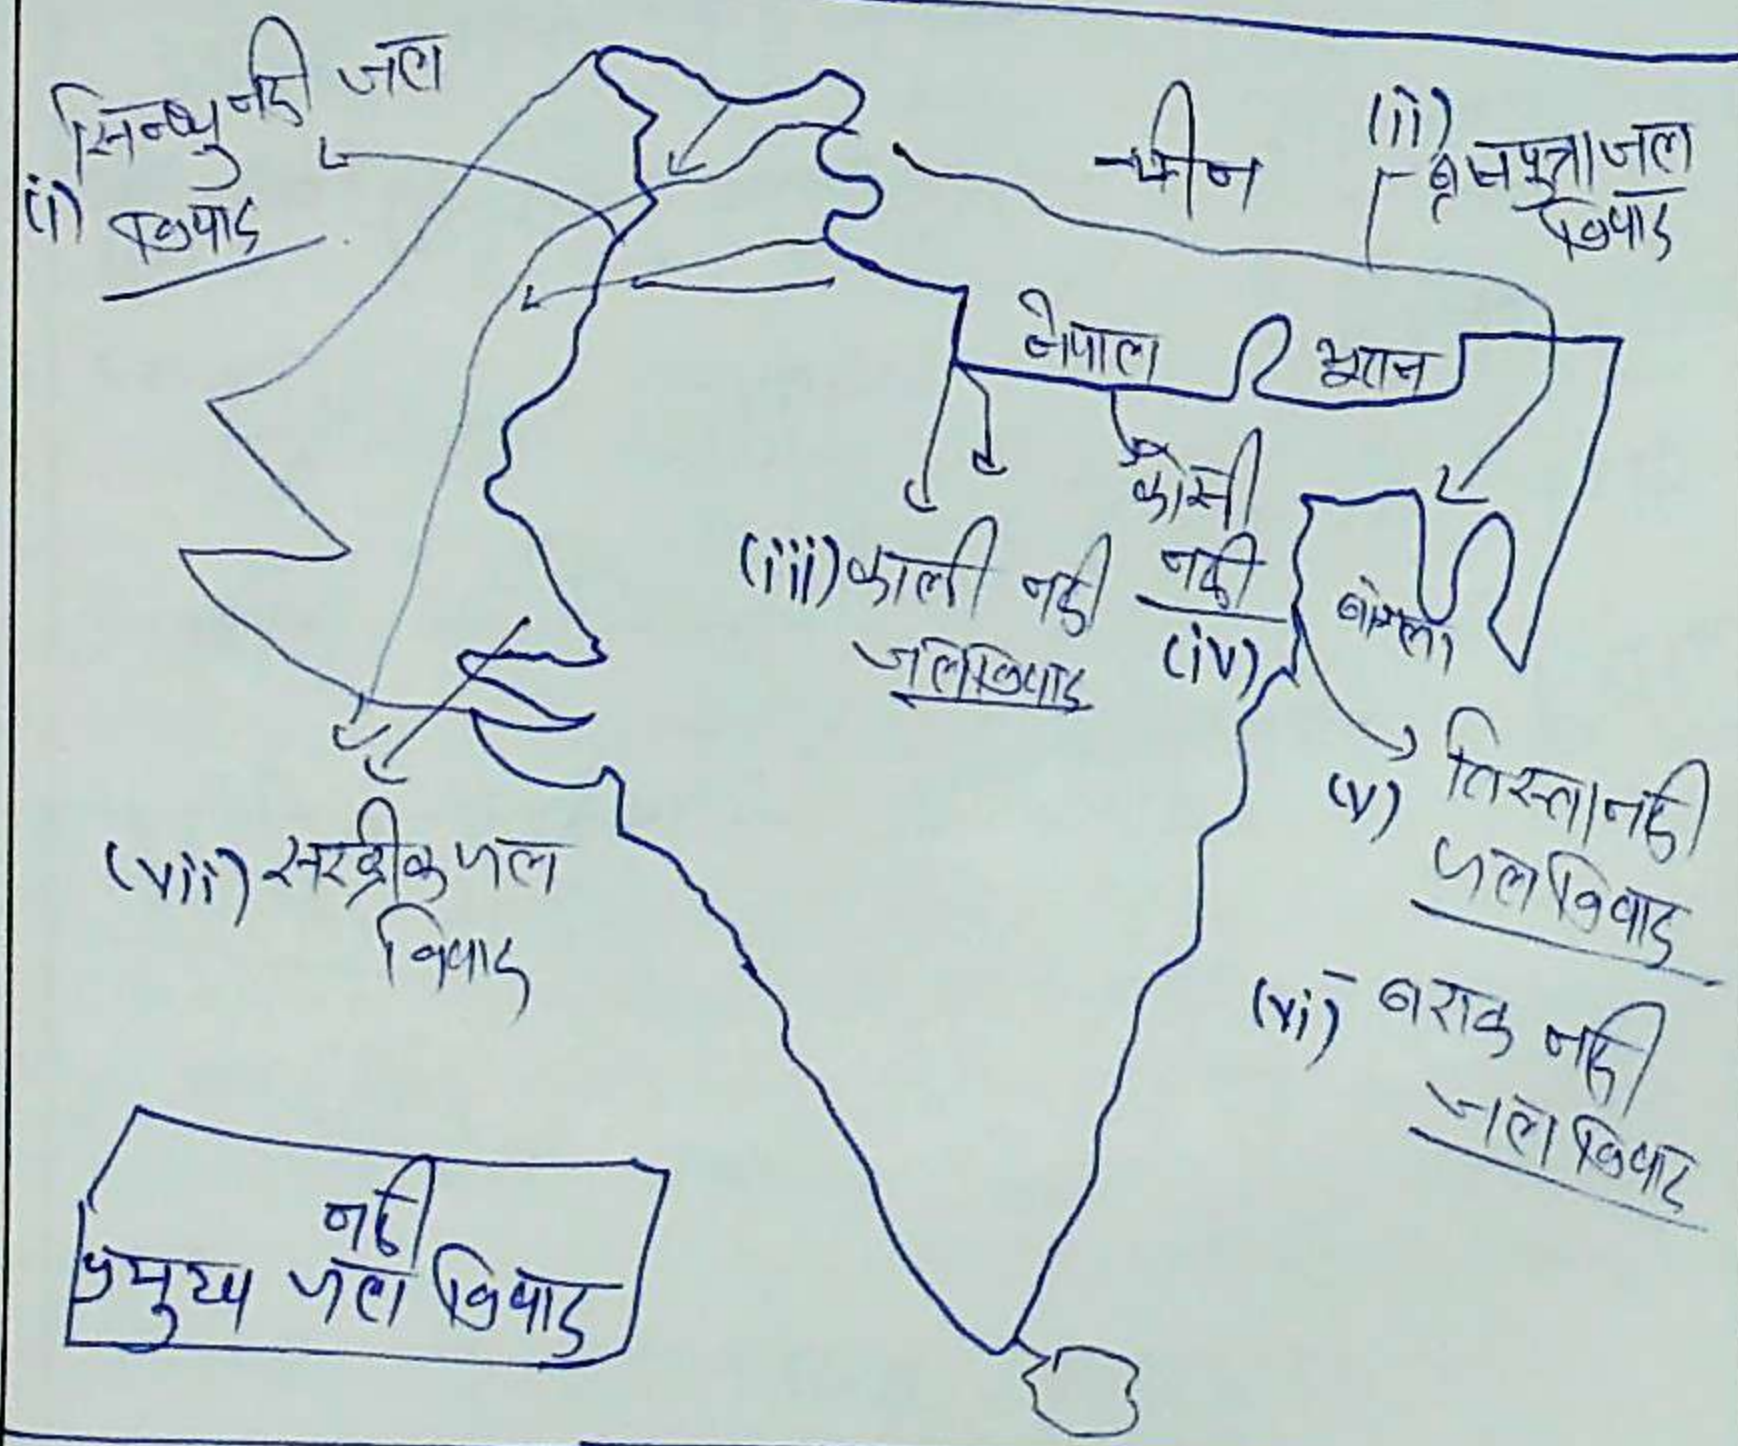 सिन्धु नदी जल
(i) विवाद
चीन
(ii)
ब्रह्मपुत्रा जल
विवाद
नेपाल
भूटान
कोसी
नदी
(iv)
(iii) काली नदी
जल विवाद
बांग्ला
(v) तिस्ता नदी
जल विवाद
(vi) बराक नदी
जल विवाद
(vii) सरक्रीक जल
विवाद
नदी
प्रमुख जल विवाद